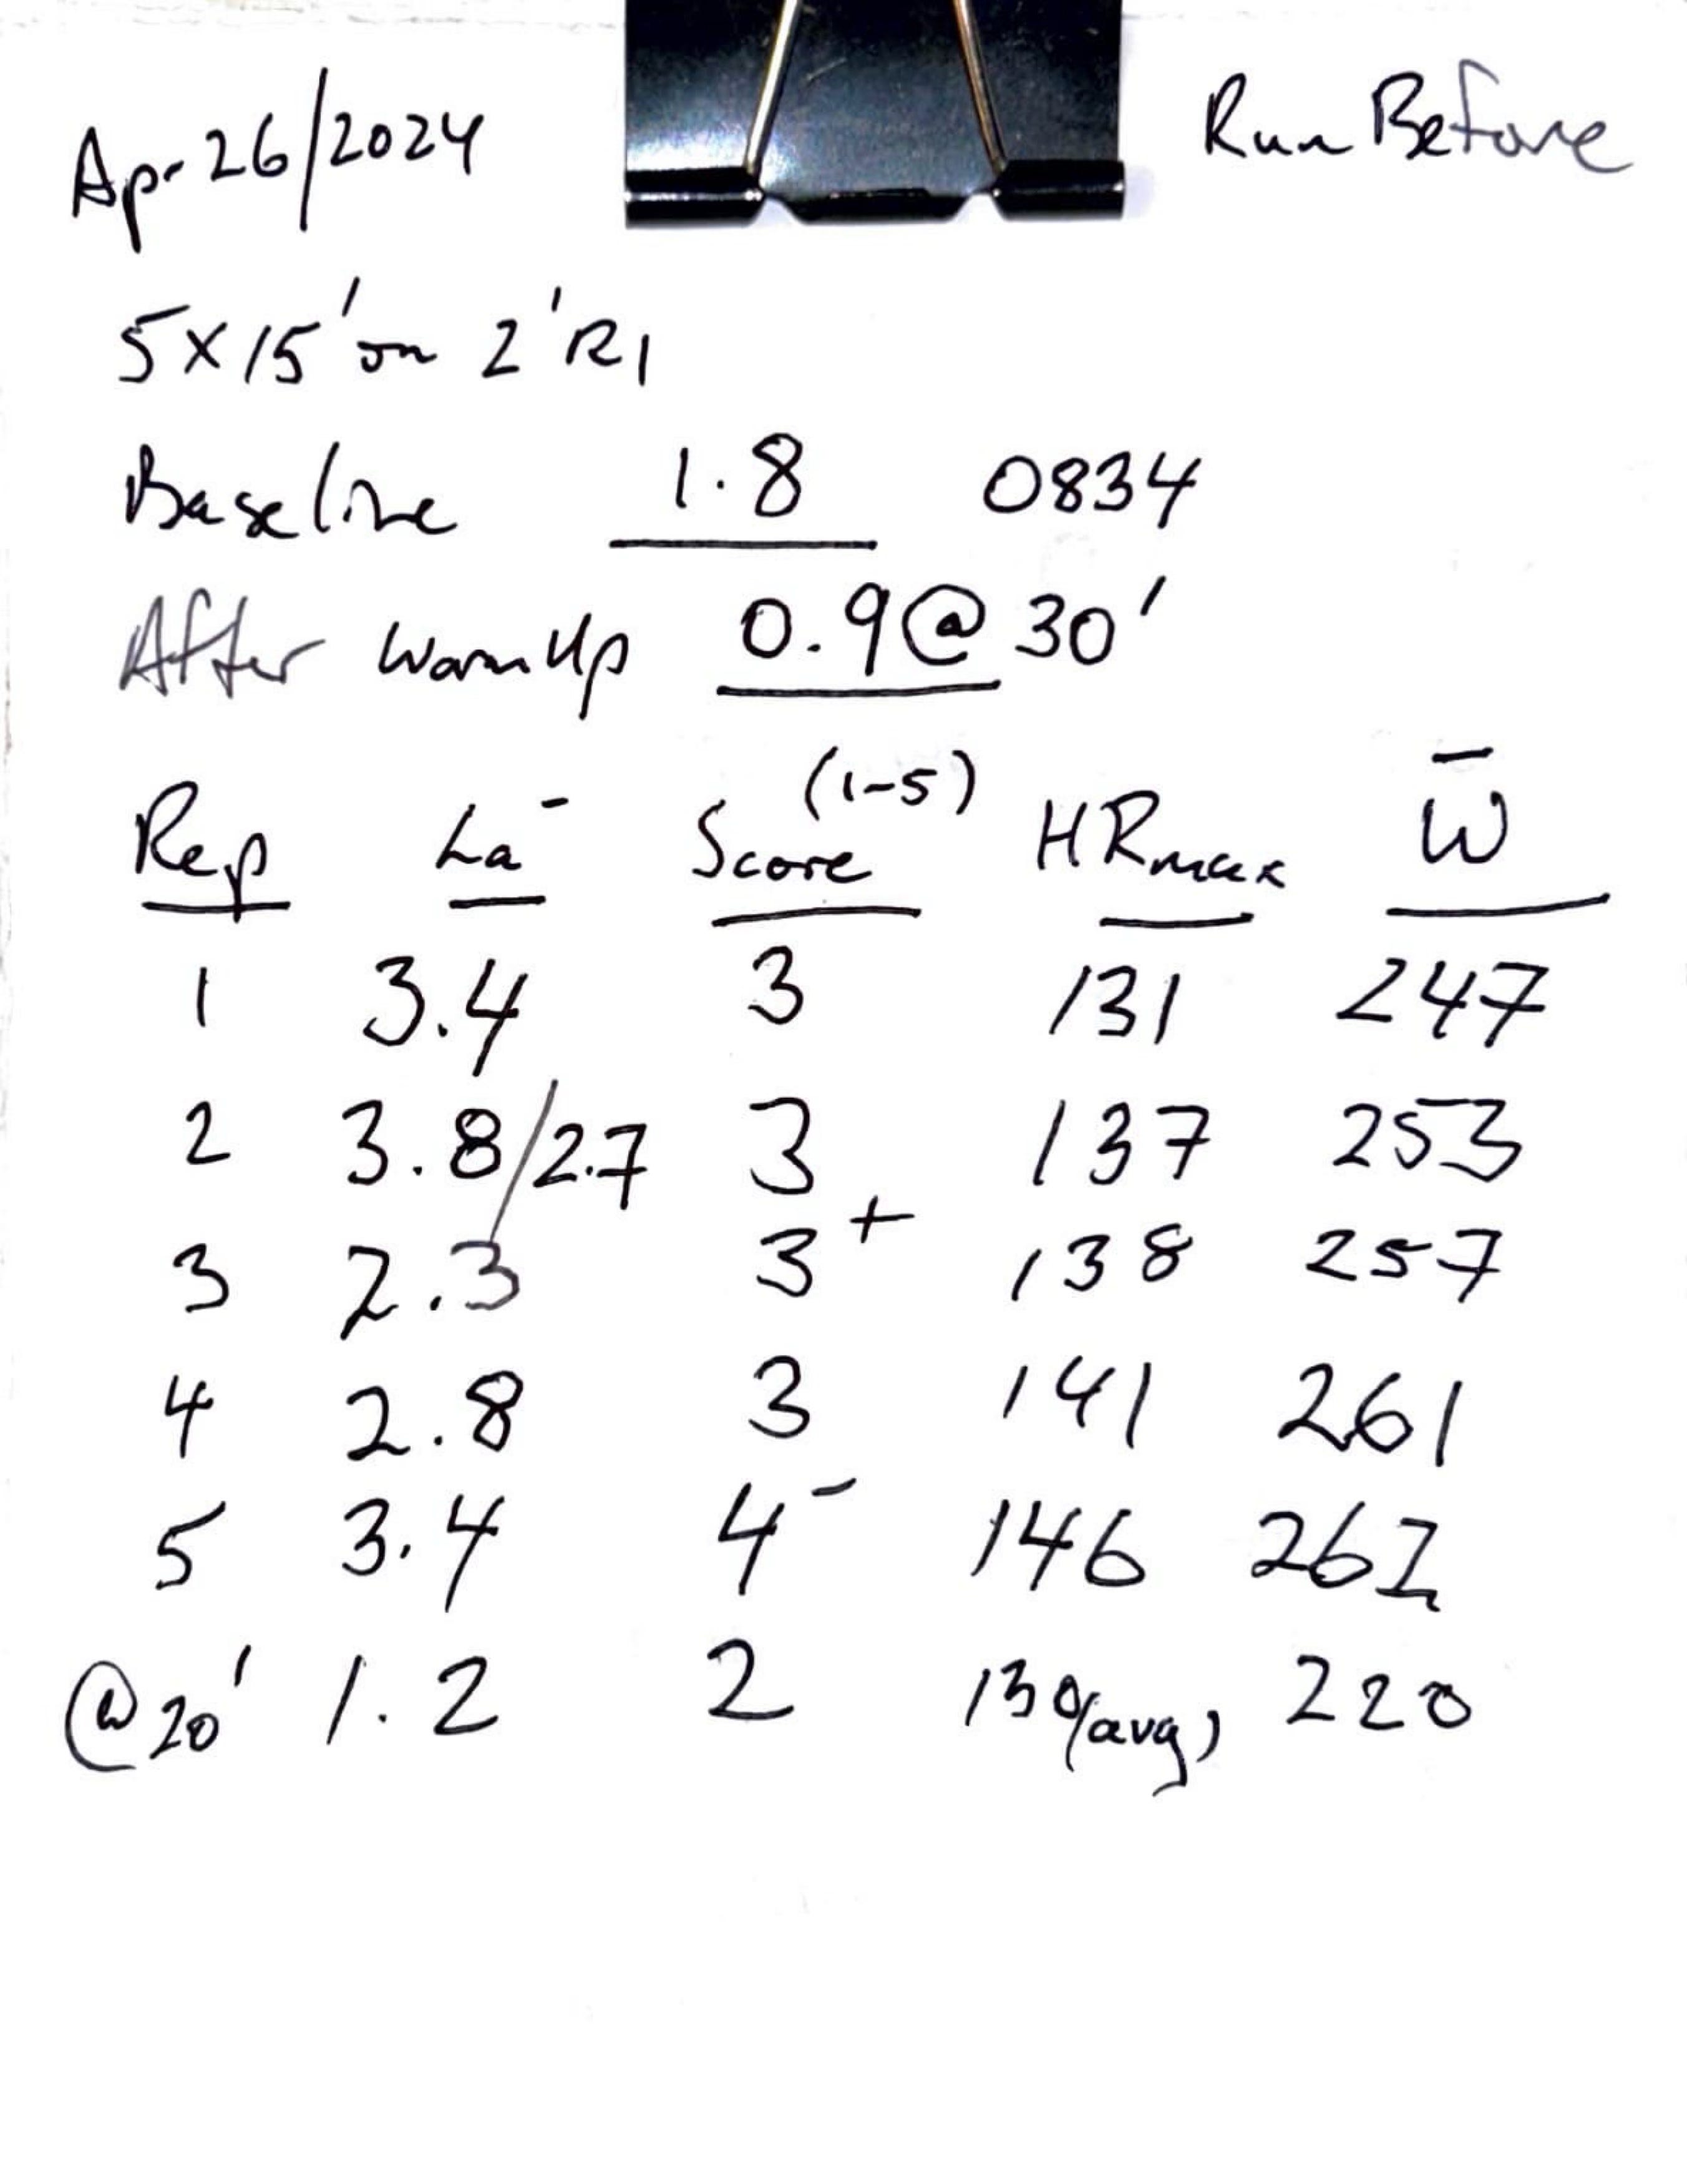 Apr 26/2024 Run Before
5x15' on 2' RI
Baseline 1.8 0834
After WarmUp 0.9@ 30'
Rep La⁻ Score (1-5) HRmax W̄
1 3.4 3 131 247
2 3.8/2.7 3 137 253
3 2.3 3⁺ 138 257
4 2.8 3 141 261
5 3.4 4⁻ 146 262
@20' 1.2 2 130(avg) 220